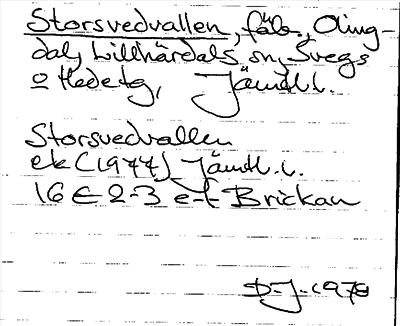 Storsvedvallen, fäb., Oling-
dal, Lillhärdals sn, Svegs
o Hede tg, Jämtl. l.
Storsvedvallen
ek (1977) Jämtl. l.
16 E 2-3 e-f Brickan
D-J-1978